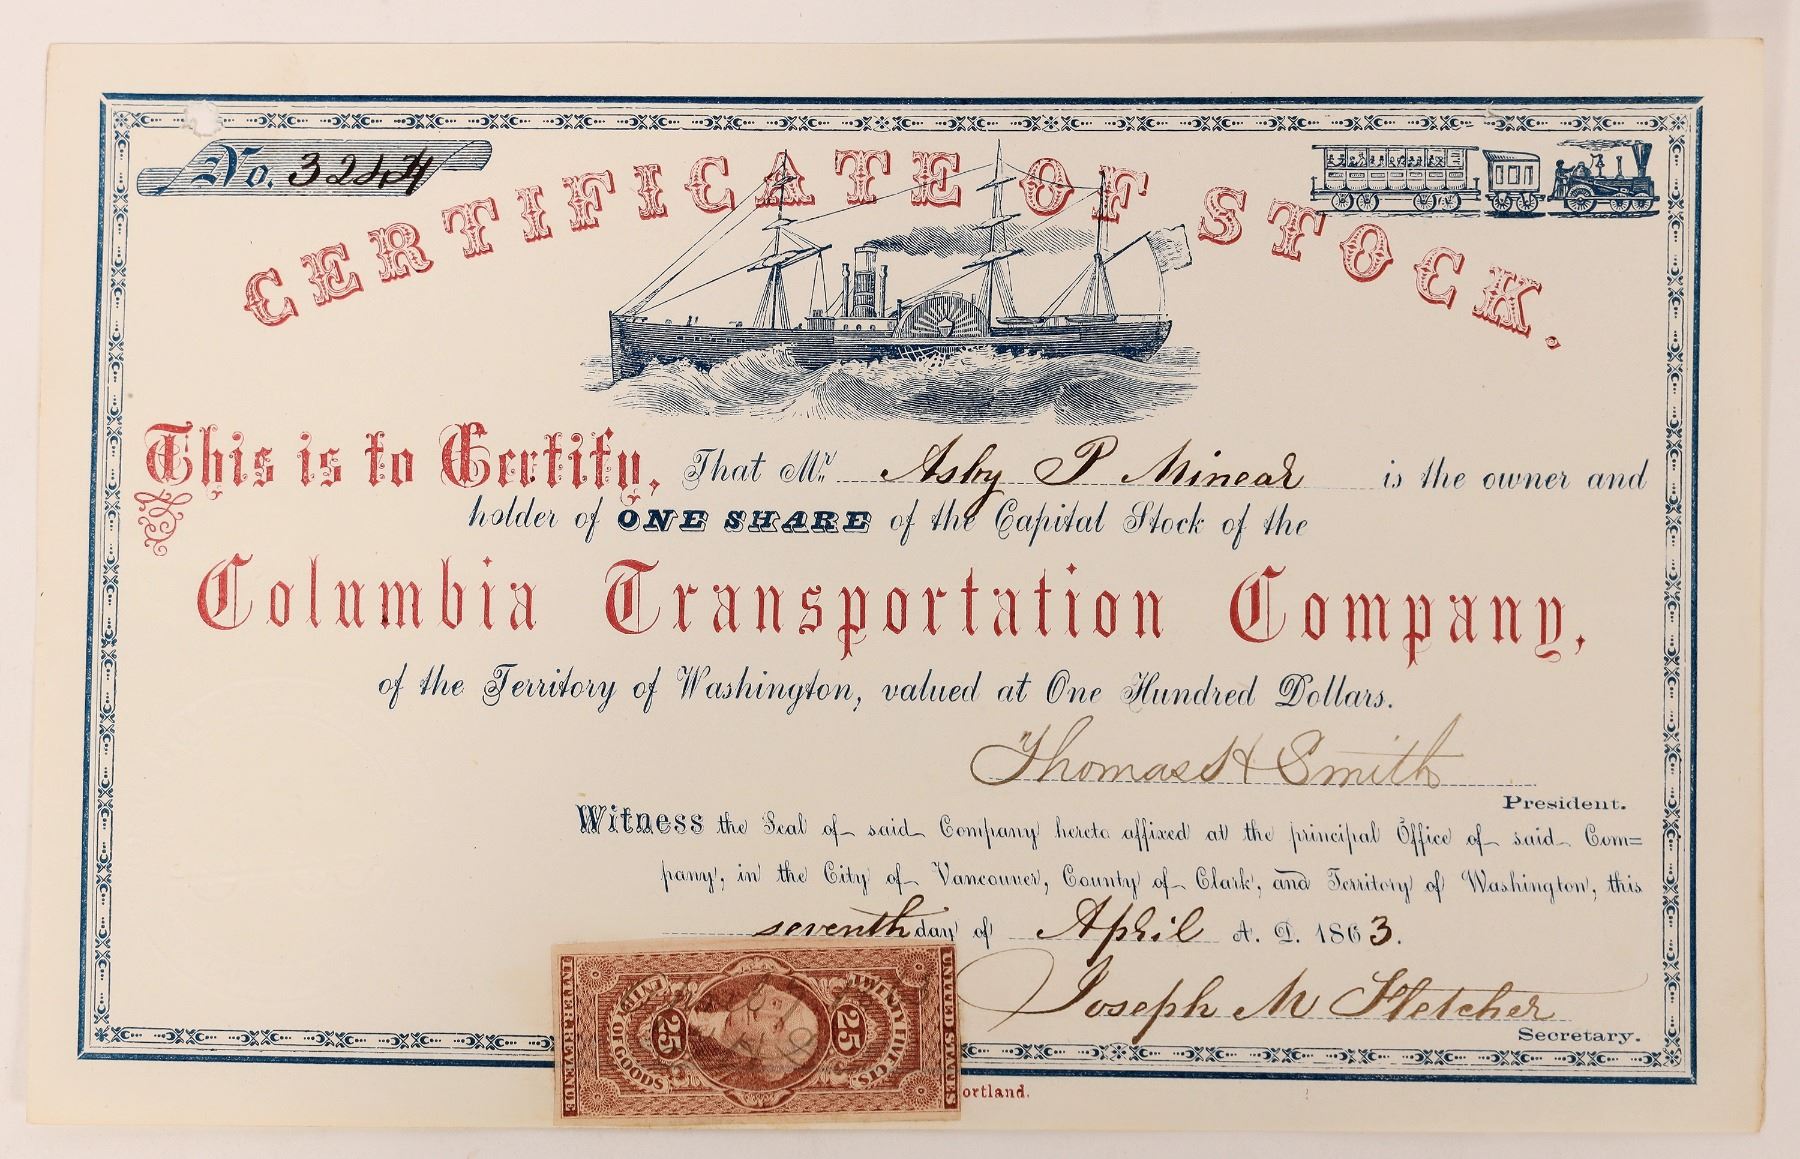 No. 3244
CERTIFICATE OF STOCK.
This is to Certify, That Mr. Asby P Minear is the owner and
holder of ONE SHARE of the Capital Stock of the
Columbia Transportation Company,
of the Territory of Washington, valued at One Hundred Dollars.
Thomas H Smith
President.
Witness the Seal of said Company hereto affixed at the principal Office of said Com=
pany, in the City of Vancouver, County of Clark, and Territory of Washington, this
seventh day of April A. D. 1863.
Joseph M Fletcher
Secretary.
INTER. REVENUE
ENTRY OF GOODS
25
25
TWENTY FIVE CTS.
UNITED STATES
ortland.